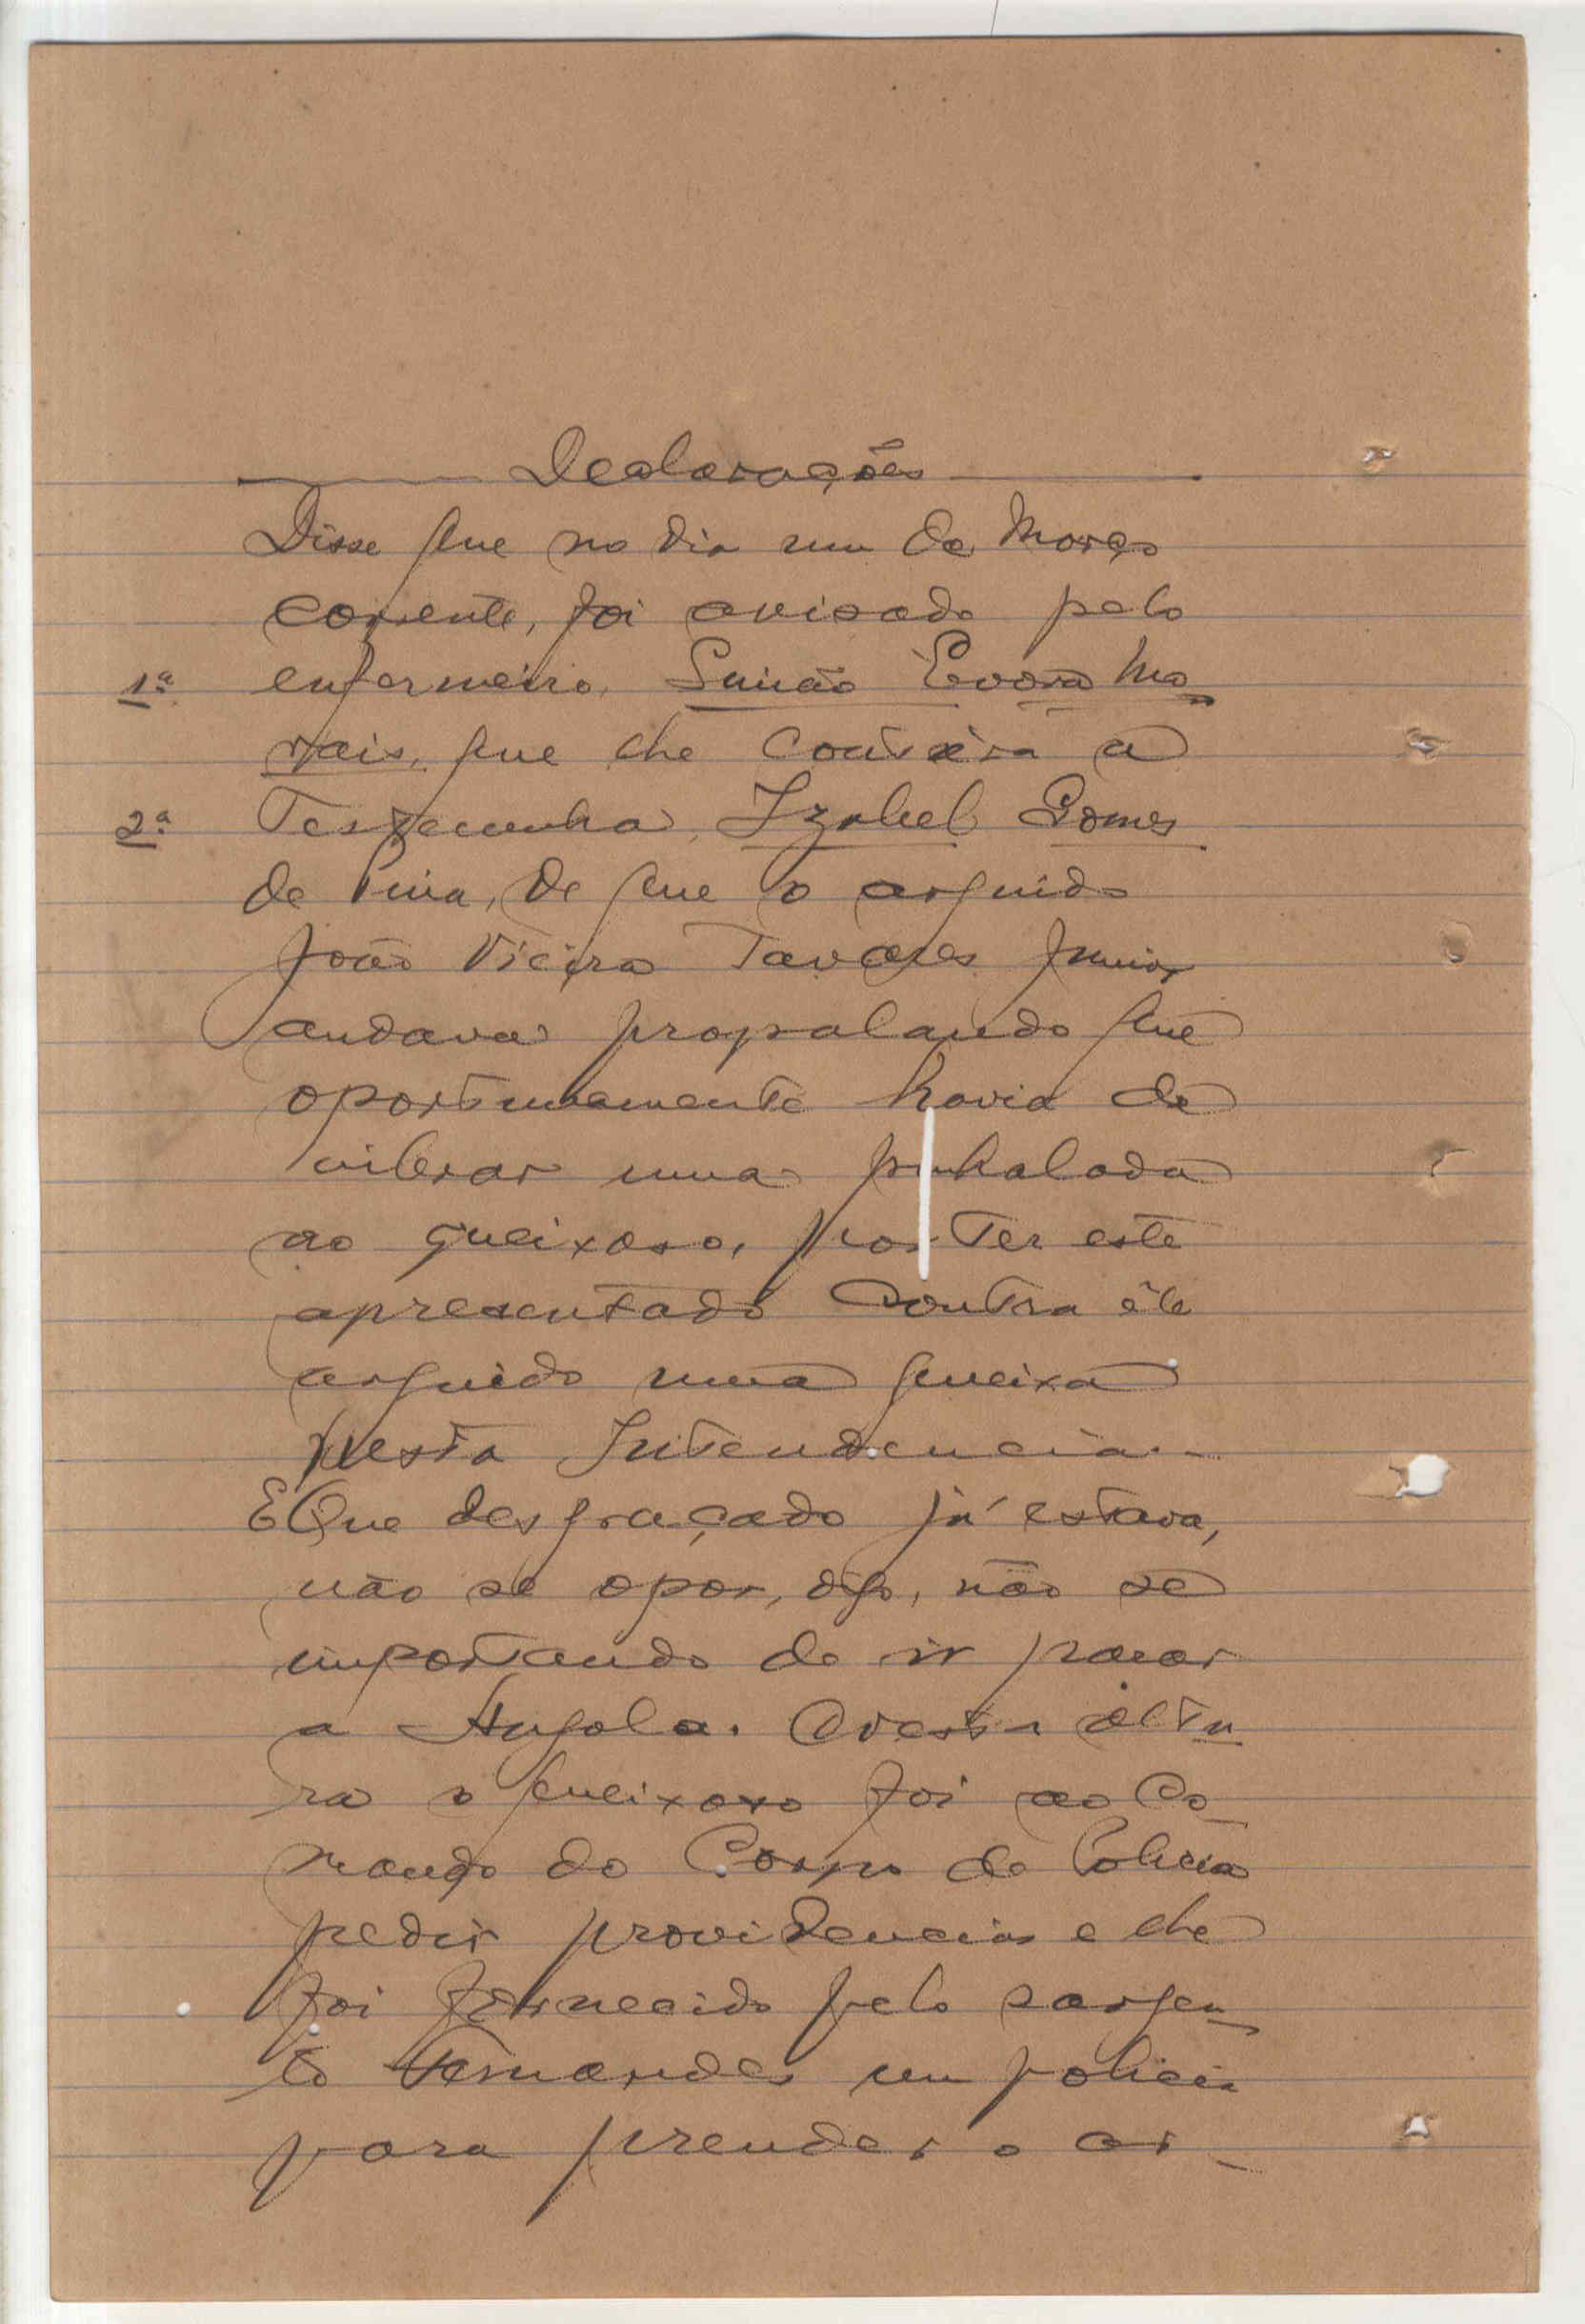 Declarações
Disse que no dia um de Março
corrente, foi avisado pelo
1ª enfermeiro, Simão Évora Mo
rais, que lhe contára a
2ª Testemunha, Izabel Gomes
de Pina, de que o arguido
João Vieira Tavares Junior
andava propalando que
oportunamente havia de
vibrar uma punhalada
ao queixoso, por ter este
apresentado contra êle
arguido uma queixa
nesta Intendencia. -
E Que desgraçado já estava,
não se opor, digo, não se
importando de ir parar
a Angola. Nesta altu
ra o queixoso foi ao Co
mando do Corpo de Policia
pedir providencias e lhe
foi fornecido pelo sargen
to Fernandes um policia
para prender o ar-